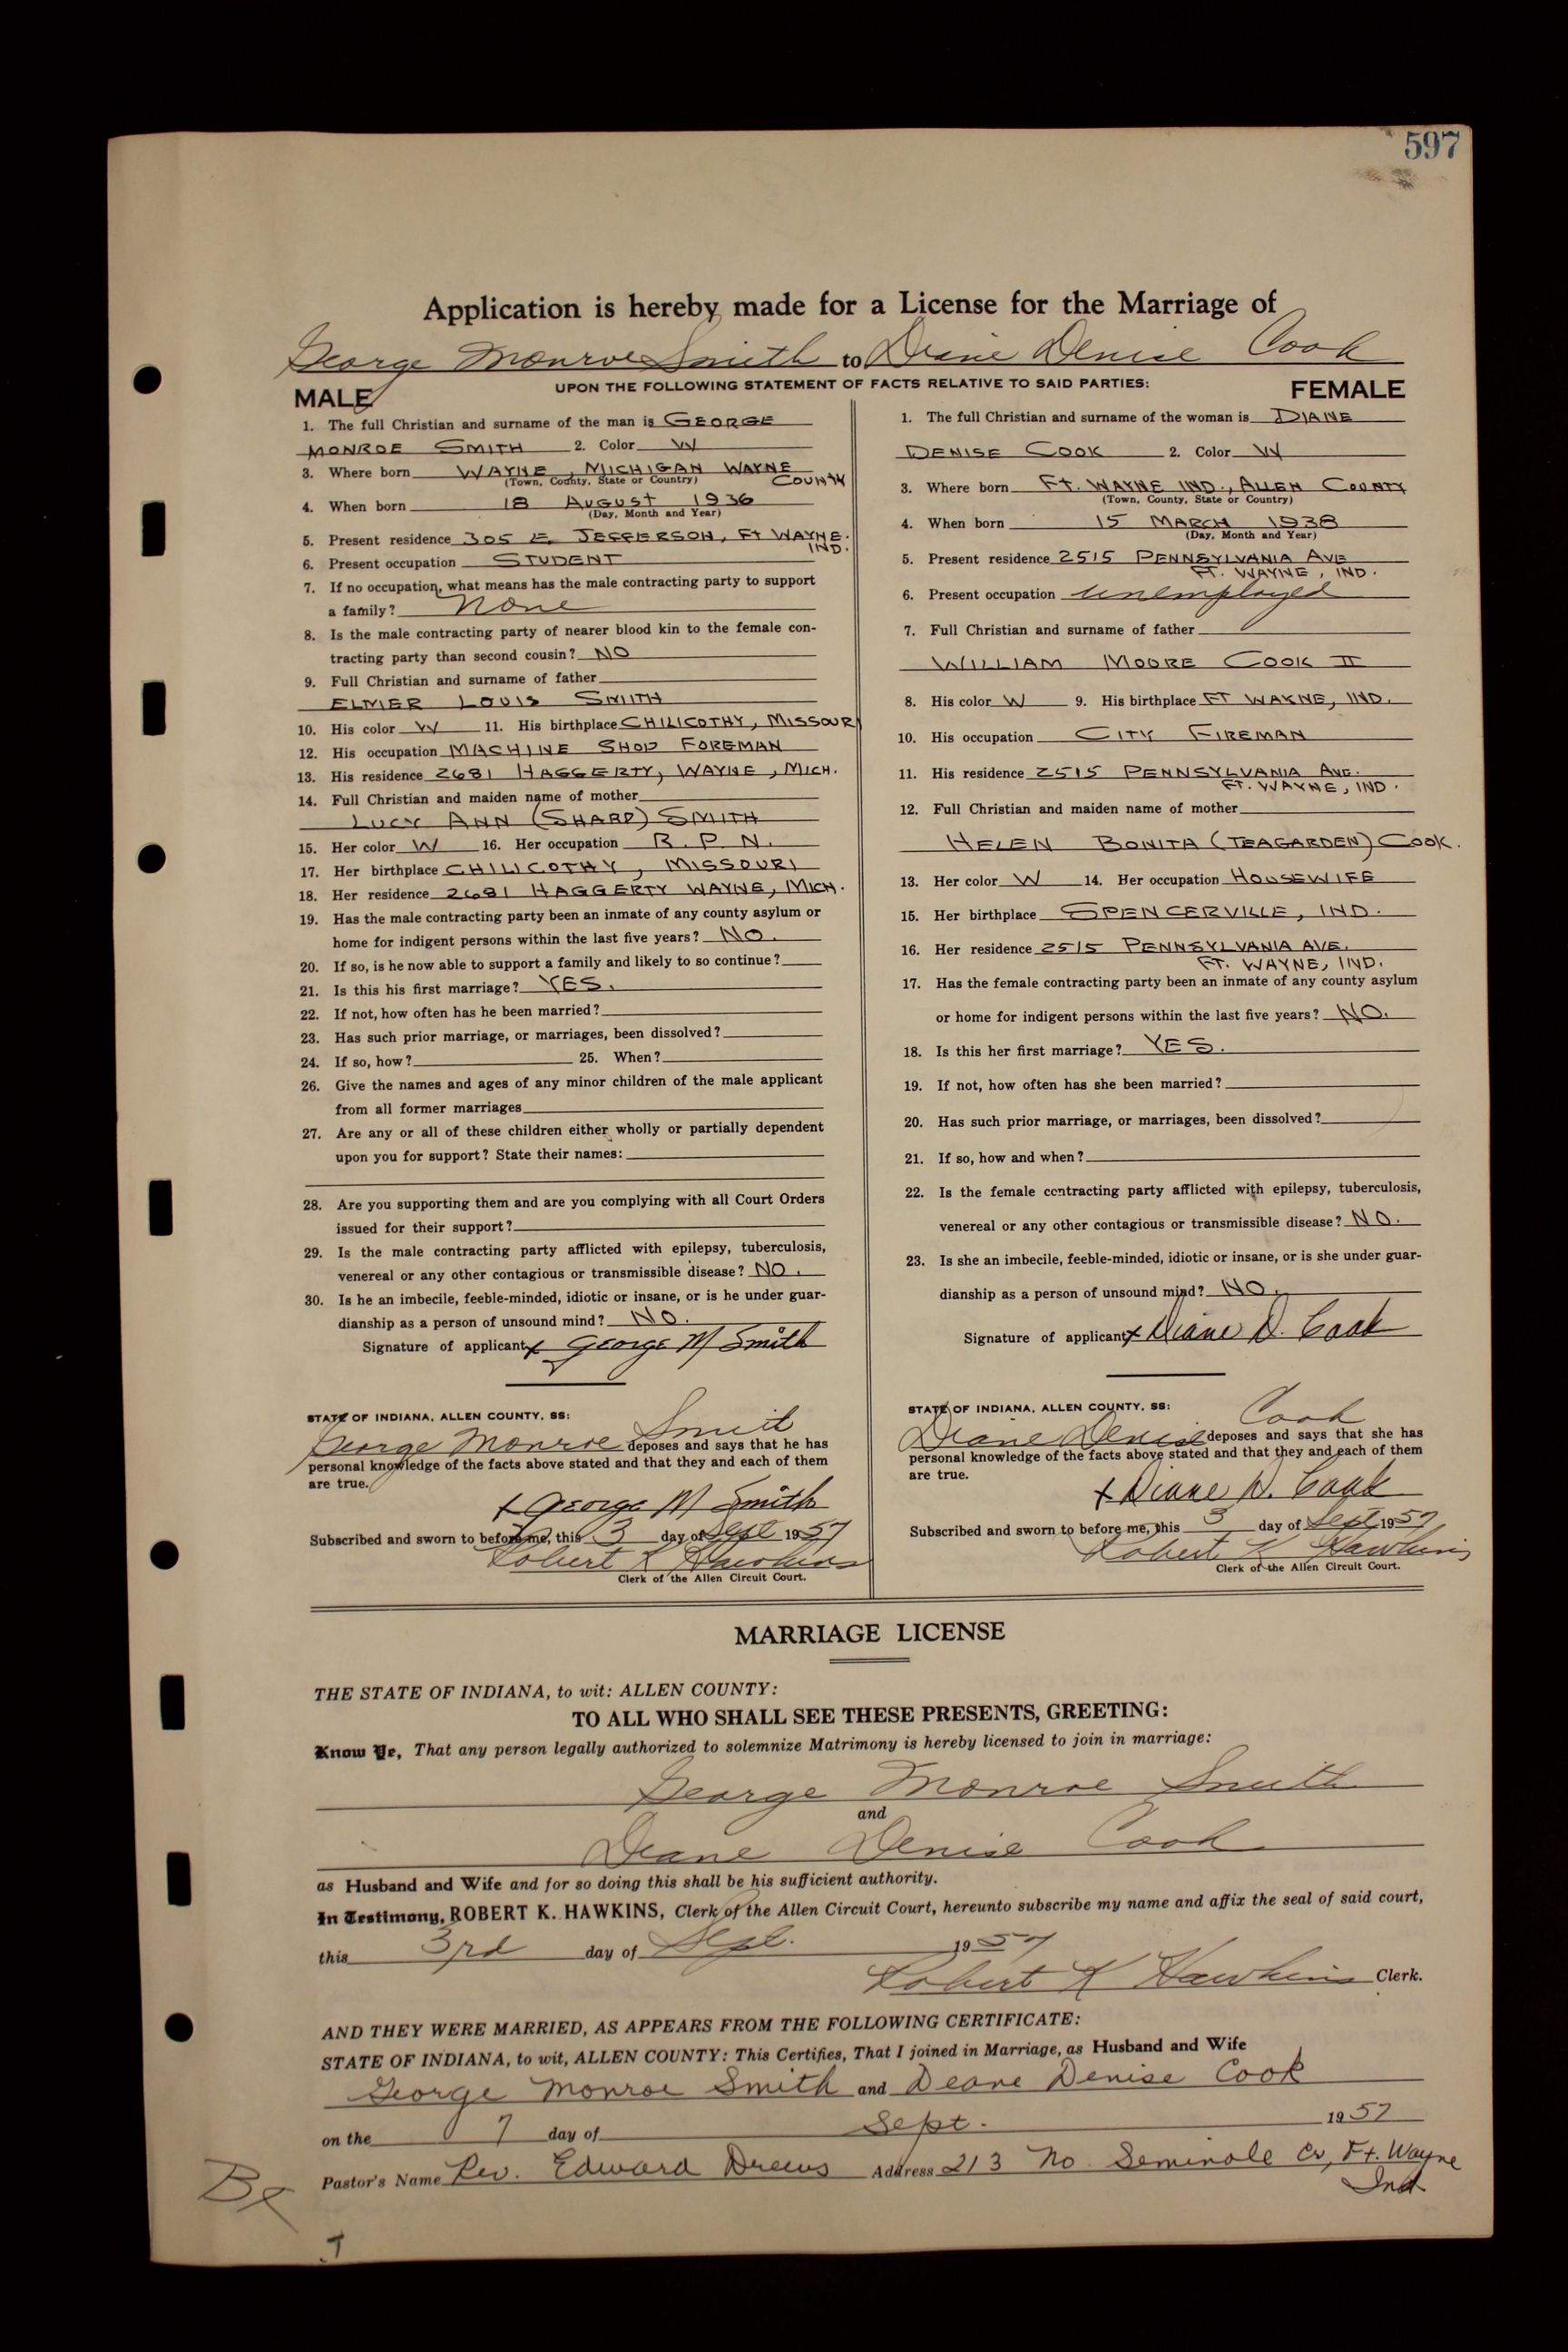 597
Application is hereby made for a License for the Marriage of
George Monroe Smith to Diane Denise Cook
UPON THE FOLLOWING STATEMENT OF FACTS RELATIVE TO SAID PARTIES:
MALE
1. The full Christian and surname of the man is GEORGE
MONROE SMITH 2. Color W
3. Where born WAYNE, MICHIGAN WAYNE
COUNTY
(Town, County, State or Country)
4. When born 18 AUGUST 1936
(Day, Month and Year)
5. Present residence 305 E. JEFFERSON, FT WAYNE.
IND.
6. Present occupation STUDENT
7. If no occupation, what means has the male contracting party to support
a family? None
8. Is the male contracting party of nearer blood kin to the female con-
tracting party than second cousin? NO
9. Full Christian and surname of father
ELMER LOUIS SMITH
10. His color W 11. His birthplace CHILICOTHY, MISSOURI
12. His occupation MACHINE SHOP FOREMAN
13. His residence 2681 HAGGERTY, WAYNE, MICH.
14. Full Christian and maiden name of mother
LUCY ANN (SHARP) SMITH
15. Her color W 16. Her occupation R. P. N.
17. Her birthplace CHILICOTHY, MISSOURI
18. Her residence 2681 HAGGERTY WAYNE, MICH.
19. Has the male contracting party been an inmate of any county asylum or
home for indigent persons within the last five years? NO.
20. If so, is he now able to support a family and likely to so continue?
21. Is this his first marriage? YES.
22. If not, how often has he been married?
23. Has such prior marriage, or marriages, been dissolved?
24. If so, how? 25. When?
26. Give the names and ages of any minor children of the male applicant
from all former marriages
27. Are any or all of these children either wholly or partially dependent
upon you for support? State their names:
28. Are you supporting them and are you complying with all Court Orders
issued for their support?
29. Is the male contracting party afflicted with epilepsy, tuberculosis,
venereal or any other contagious or transmissible disease? NO.
30. Is he an imbecile, feeble-minded, idiotic or insane, or is he under guar-
dianship as a person of unsound mind? NO.
Signature of applicant x George M Smith
STATE OF INDIANA, ALLEN COUNTY, SS:
George Monroe Smith deposes and says that he has
personal knowledge of the facts above stated and that they and each of them
are true.
x George M Smith
Subscribed and sworn to before me, this 3 day of Sept 1957
Robert K Hawkins
Clerk of the Allen Circuit Court.
FEMALE
1. The full Christian and surname of the woman is DIANE
DENISE COOK 2. Color W
3. Where born FT. WAYNE IND., ALLEN COUNTY
(Town, County, State or Country)
4. When born 15 MARCH 1938
(Day, Month and Year)
5. Present residence 2515 PENNSYLVANIA AVE
FT. WAYNE, IND.
6. Present occupation unemployed
7. Full Christian and surname of father
WILLIAM MOORE COOK II
8. His color W 9. His birthplace FT WAYNE, IND.
10. His occupation CITY FIREMAN
11. His residence 2515 PENNSYLVANIA AVE.
FT. WAYNE, IND.
12. Full Christian and maiden name of mother
HELEN BONITA (TEAGARDEN) COOK.
13. Her color W 14. Her occupation HOUSEWIFE
15. Her birthplace SPENCERVILLE, IND.
16. Her residence 2515 PENNSYLVANIA AVE.
FT. WAYNE, IND.
17. Has the female contracting party been an inmate of any county asylum
or home for indigent persons within the last five years? NO.
18. Is this her first marriage? YES.
19. If not, how often has she been married?
20. Has such prior marriage, or marriages, been dissolved?
21. If so, how and when?
22. Is the female contracting party afflicted with epilepsy, tuberculosis,
venereal or any other contagious or transmissible disease? NO.
23. Is she an imbecile, feeble-minded, idiotic or insane, or is she under guar-
dianship as a person of unsound mind? NO.
Signature of applicant x Diane D. Cook
STATE OF INDIANA, ALLEN COUNTY, SS:
Diane Denise Cook deposes and says that she has
personal knowledge of the facts above stated and that they and each of them
are true.
x Diane D. Cook
Subscribed and sworn to before me, this 3 day of Sept 1957
Robert K Hawkins
Clerk of the Allen Circuit Court.
MARRIAGE LICENSE
THE STATE OF INDIANA, to wit: ALLEN COUNTY:
TO ALL WHO SHALL SEE THESE PRESENTS, GREETING:
Know Ye, That any person legally authorized to solemnize Matrimony is hereby licensed to join in marriage:
George Monroe Smith
and
Diane Denise Cook
as Husband and Wife and for so doing this shall be his sufficient authority.
In Testimony, ROBERT K. HAWKINS, Clerk of the Allen Circuit Court, hereunto subscribe my name and affix the seal of said court,
this 3rd day of Sept. 1957
Robert K Hawkins Clerk.
AND THEY WERE MARRIED, AS APPEARS FROM THE FOLLOWING CERTIFICATE:
STATE OF INDIANA, to wit, ALLEN COUNTY: This Certifies, That I joined in Marriage, as Husband and Wife
George Monroe Smith and Deane Denise Cook
on the 7 day of Sept. 1957
Pastor's Name Rev. Edward Drews Address 213 No. Seminole Cr, Ft. Wayne
Ind